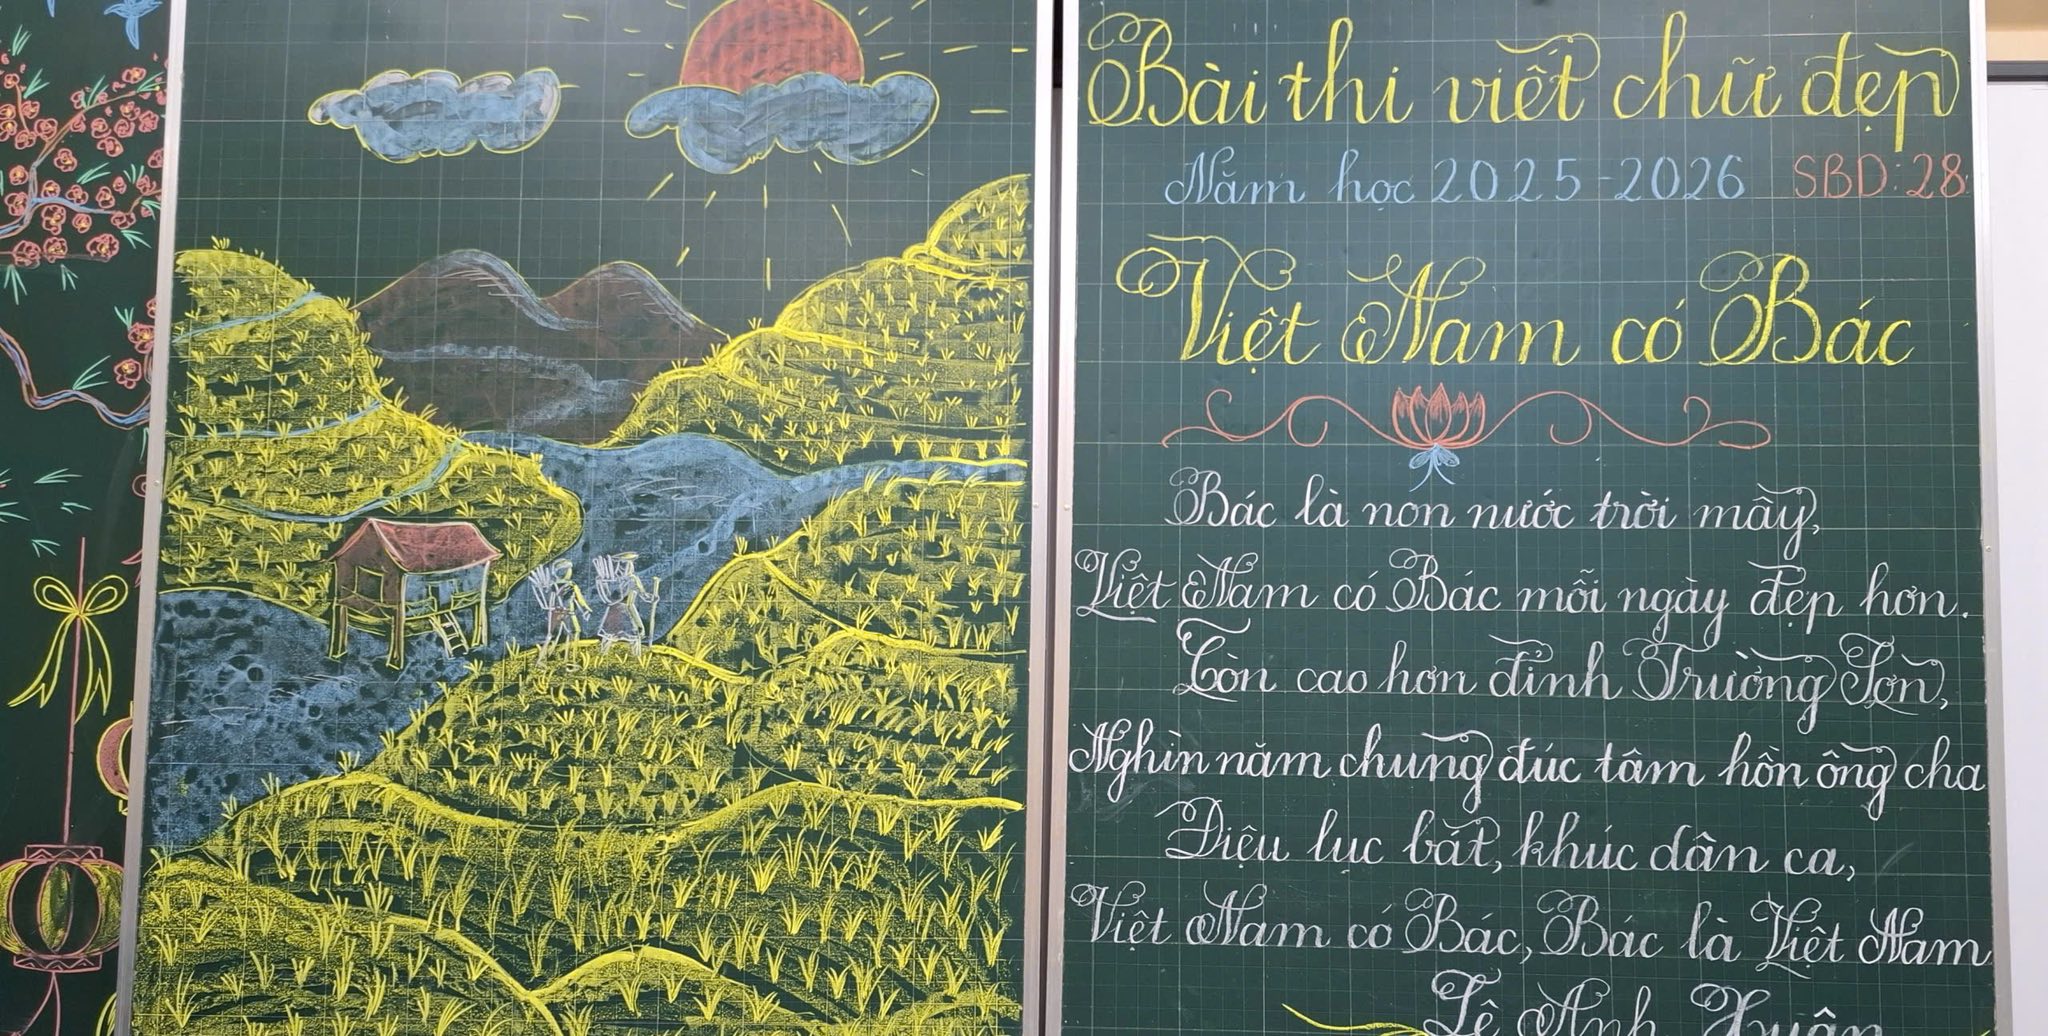 Bài thi viết chữ đẹp
Năm học 2025-2026 SBD: 28
Việt Nam có Bác
Bác là non nước trời mầy,
Việt Nam có Bác mỗi ngày đẹp hơn.
Còn cao hơn đỉnh Trường Sơn,
Nghìn năm chung đúc tâm hồn ông cha
Điệu lục bát, khúc dân ca,
Việt Nam có Bác, Bác là Việt Nam
Lê Anh Xuân